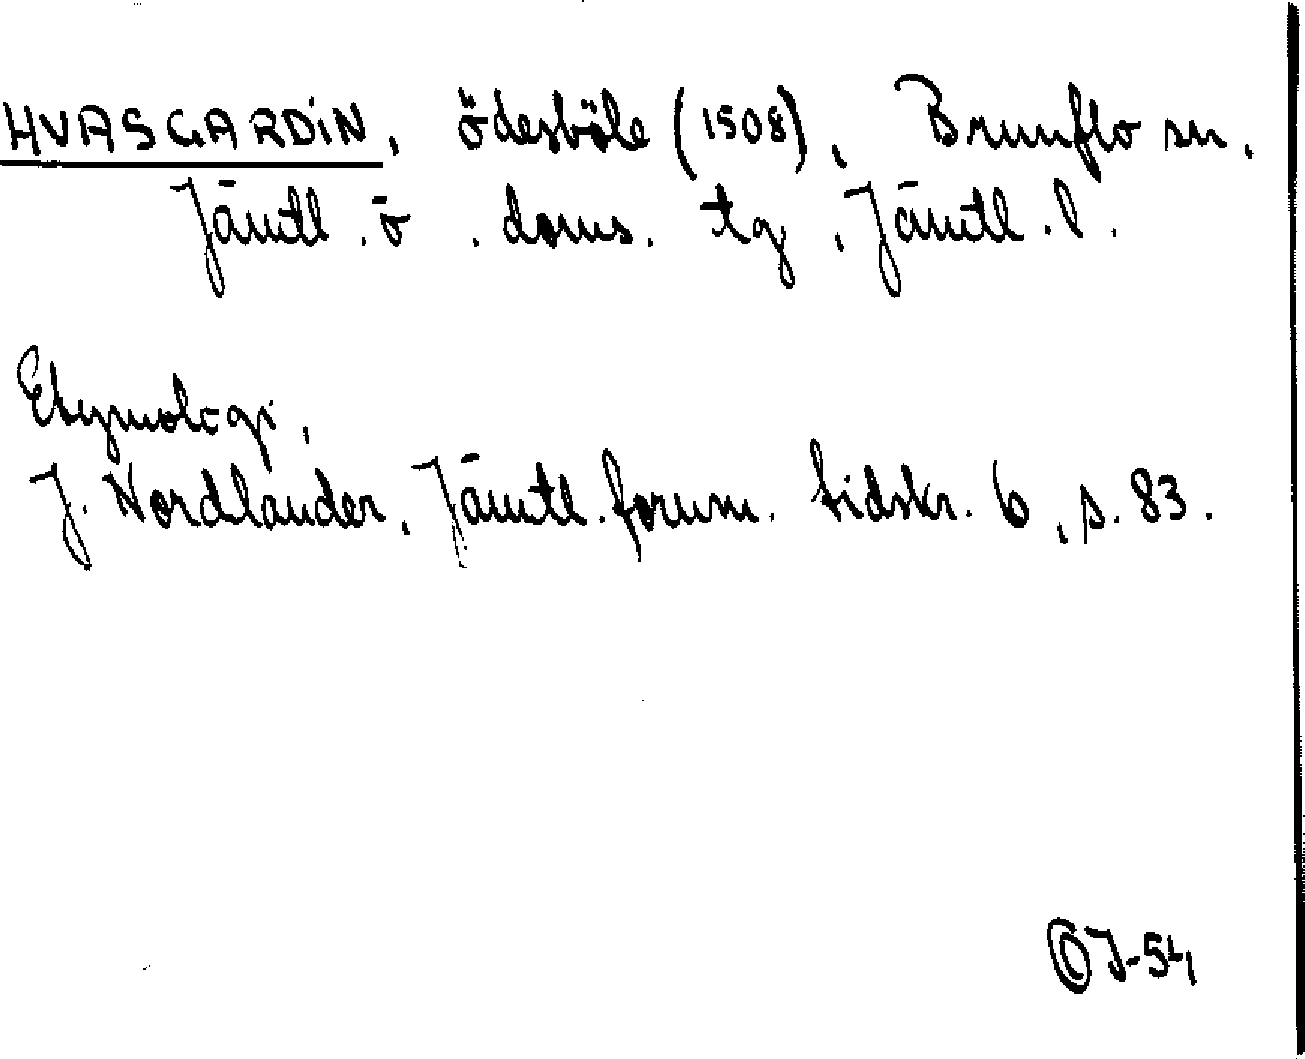 HVASGARDIN, ödesböle (1508), Brunflo sn,
Jämtl. ö. doms. tg, Jämtl. l.
Etymologi,
J. Nordlander, Jämtl. fornm. tidskr. 6, s. 83.
ÖJ-54